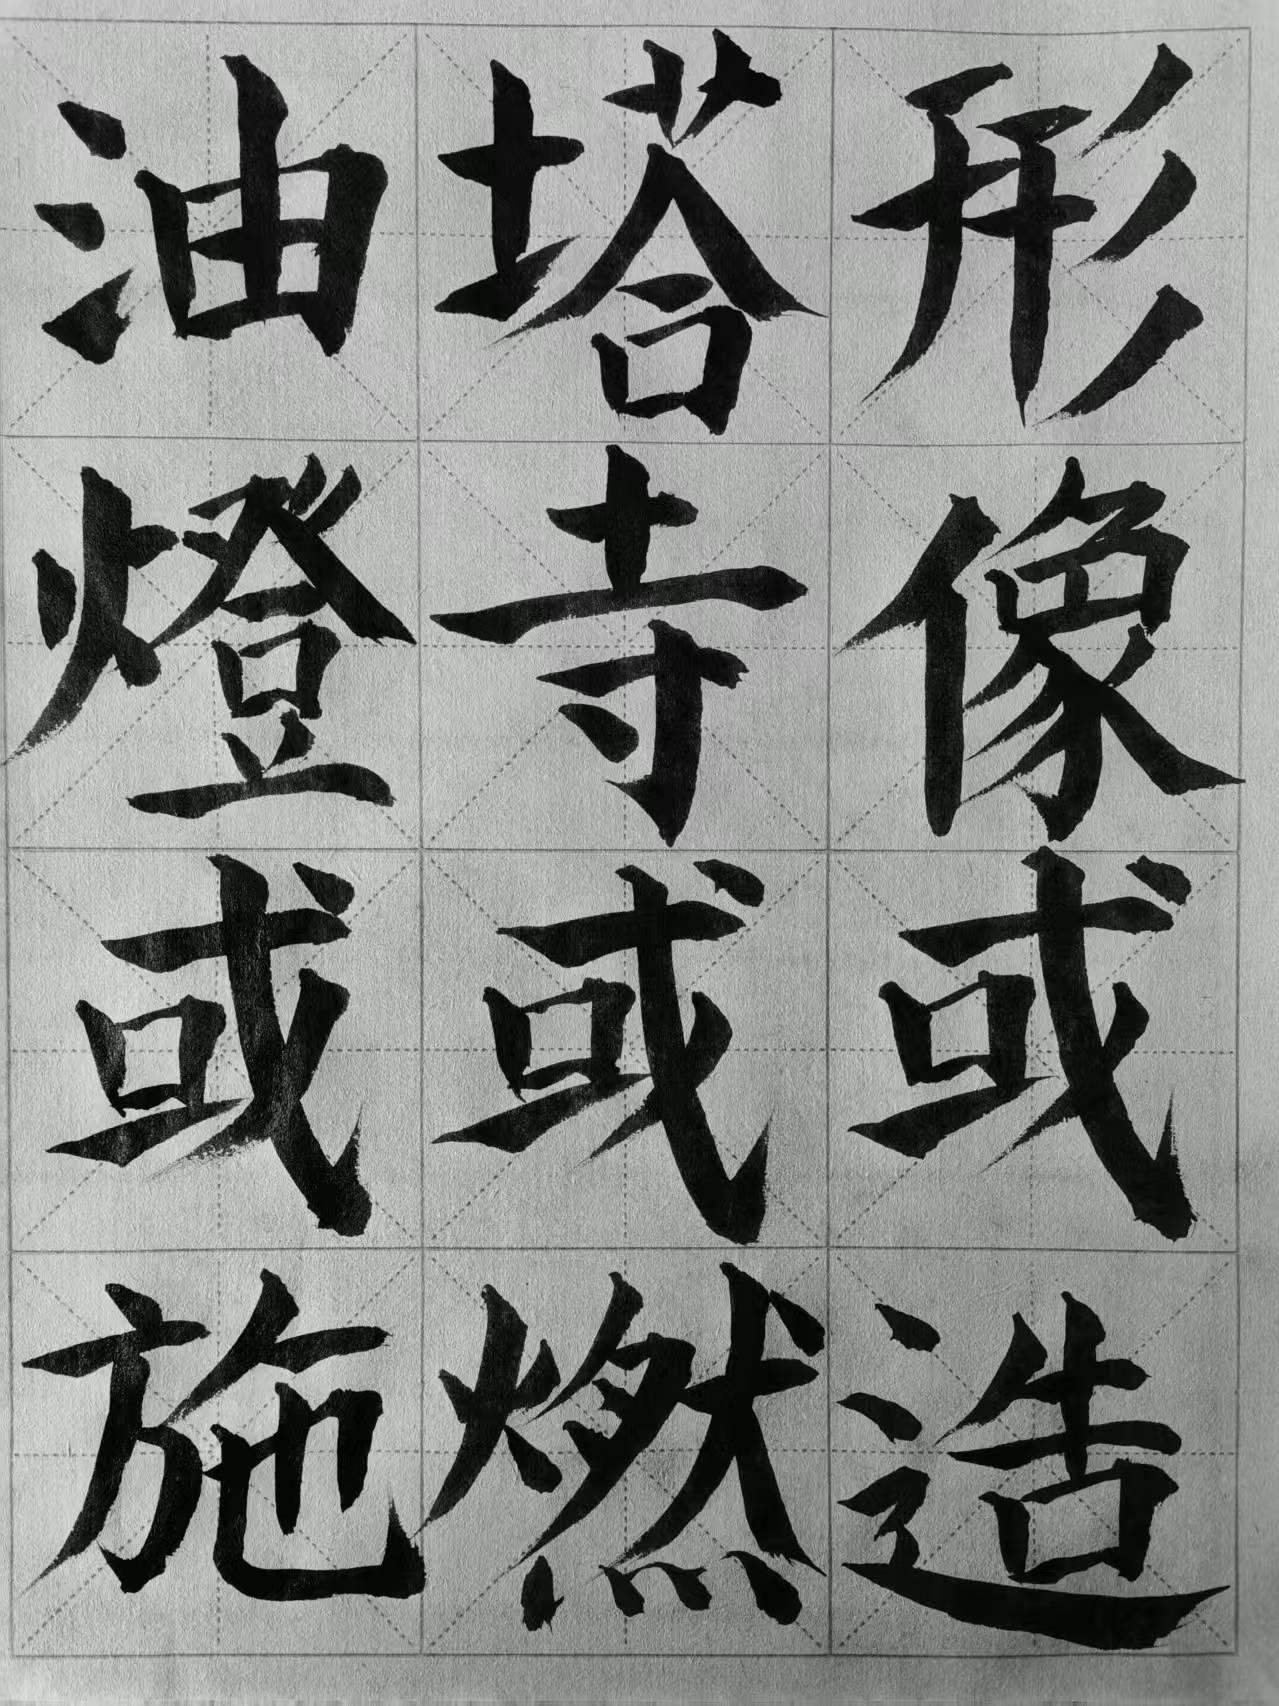 形像或造
塔寺或燃
油燈或施